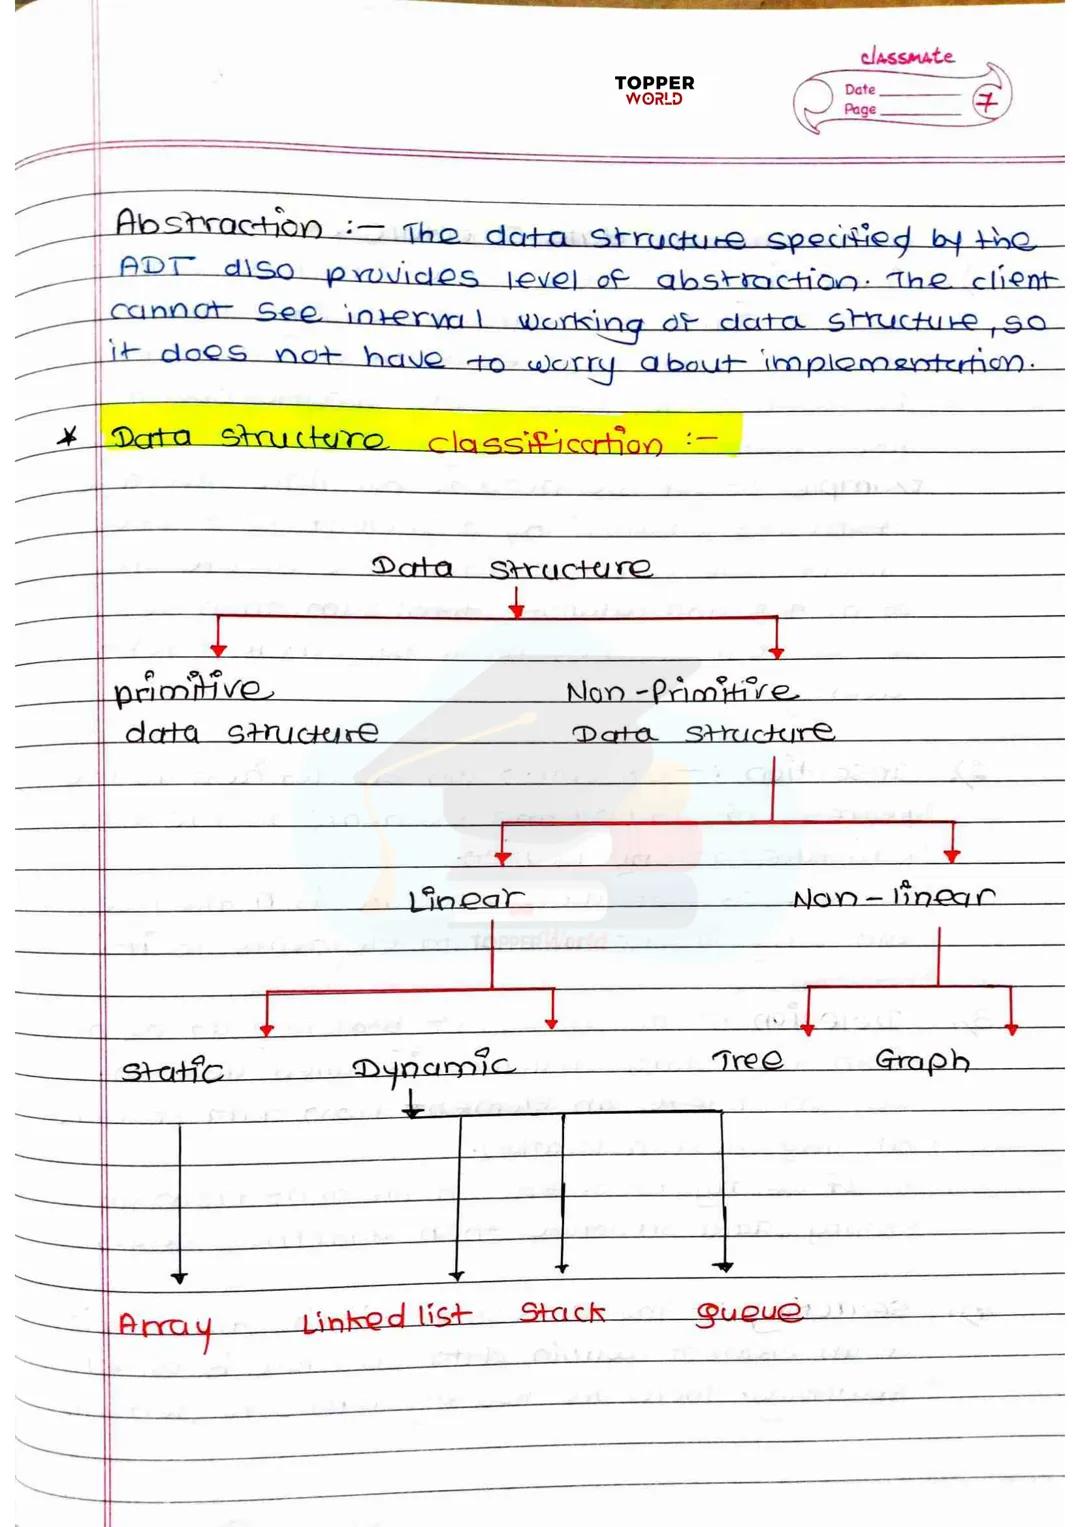 TOPPER
WORLD
classmate
Date
Page
7
Abstraction :- The data structure specified by the
ADT also provides level of abstraction. The client
cannot see interval working of data structure, so
it does not have to worry about implementation.
* Data structure classification :-
Data structure
primitive Non-Primitive
data structure Data structure
Linear Non-linear
Static Dynamic Tree Graph
Array Linked list Stack Queue